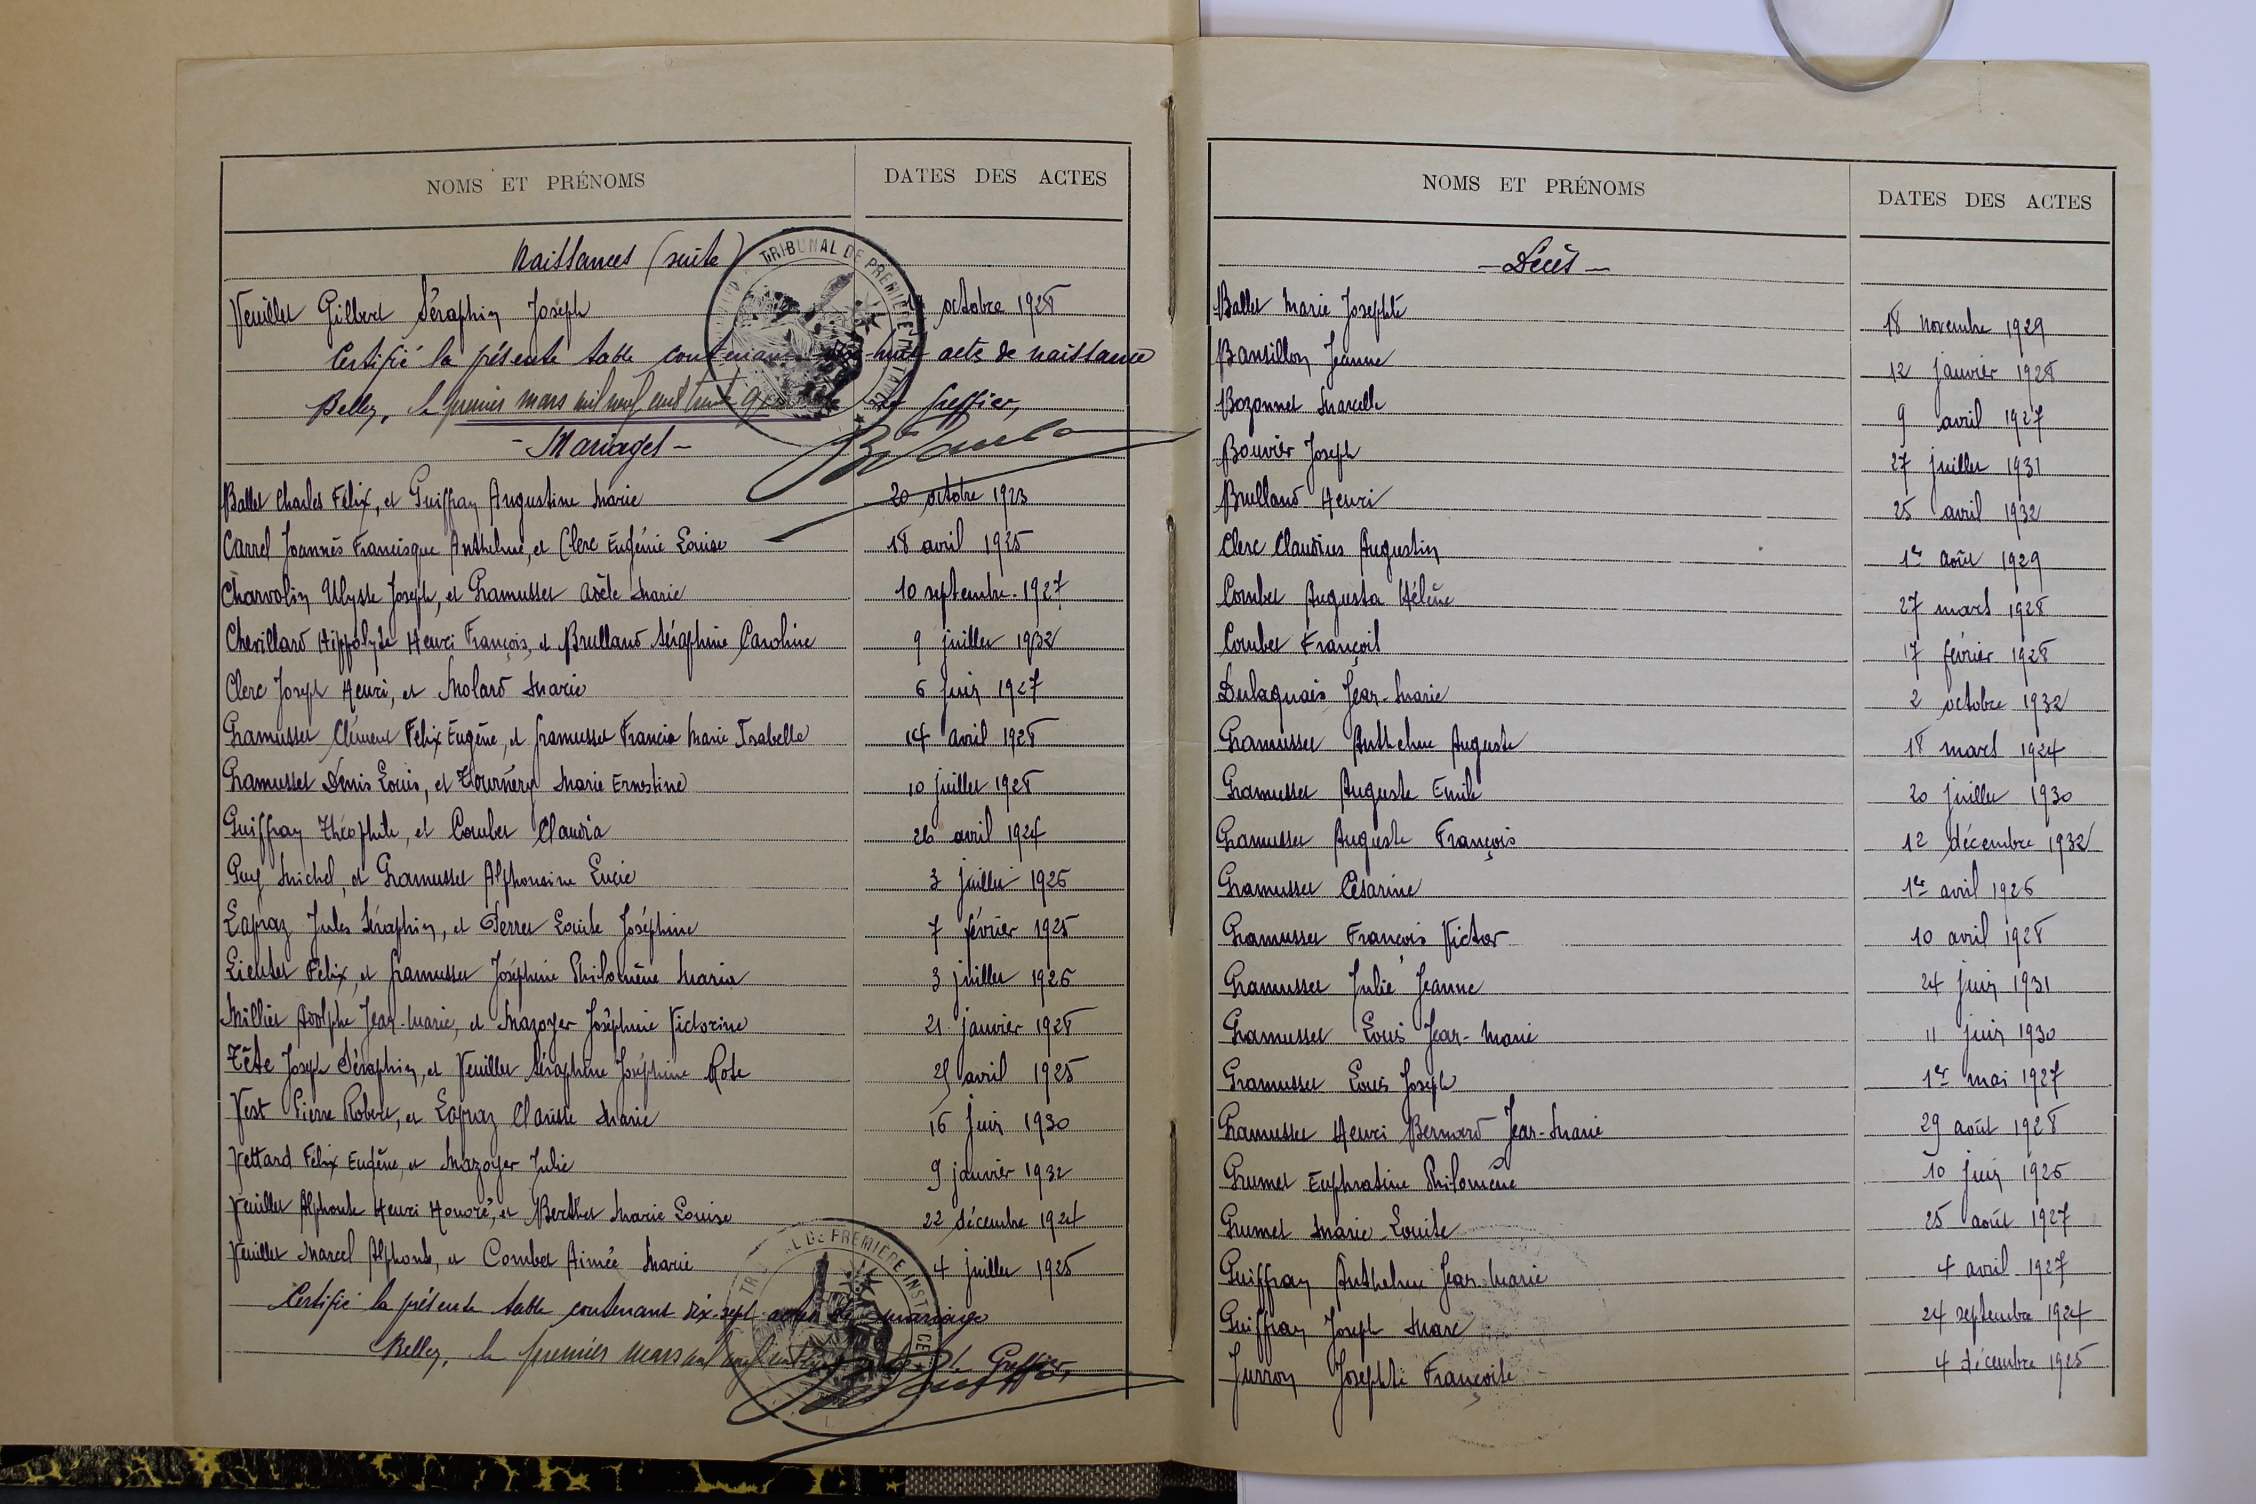 NOMS ET PRÉNOMS DATES DES ACTES
Naissances (suite)
TRIBUNAL DE PREMIÈRE INSTANCE
Veuillet Gilbert Séraphin Joseph octobre 1928
Certifié la présente table contenant huit acte de naissance
Belley, le premier mars mil neuf cent trente Le Greffier,
- Mariages -
Ballet Charles Félix, et Guiffray Augustine Marie 20 octobre 1923
Carrel Joannès Francisque Anthelme, et Clerc Eugénie Louise 18 avril 1925
Charvolin Ulysse Joseph, et Gramusset Adèle Marie 10 septembre 1927
Chevillard Hippolyte Henri François, et Brulland Séraphine Caroline 9 juillet 1932
Clerc Joseph Henri, et Molard Marie 6 juin 1927
Gramusset Clément Félix Eugène, et Gramusset Francia Marie Isabelle 14 avril 1928
Gramusset Denis Louis, et Tournery Marie Ernestine 10 juillet 1928
Guiffray Théophile, et Combet Claudia 26 avril 1924
Guy Michel, et Gramusset Alphonsine Lucie 3 juillet 1926
Lapraz Jules Séraphin, et Perret Louise Joséphine 7 février 1925
Lientet Félix, et Gramusset Joséphine Philomène Maria 3 juillet 1926
Milliet Adolphe Jean-Marie, et Mazoyer Joséphine Victorine 21 janvier 1928
Tête Joseph Séraphin, et Veuillet Séraphine Joséphine Rose 25 avril 1925
Vest Pierre Robert, et Lapraz Clarisse Marie 16 juin 1930
Vettard Félix Eugène, et Mazoyer Julie 9 janvier 1932
Veuillet Alphonse Henri Honoré, et Berthet Marie Louise 22 décembre 1924
Veuillet Marcel Alphonse, et Combet Aimée Marie 4 juillet 1925
Certifié la présente table contenant dix-sept actes de mariage
Belley, le premier mars mil neuf cent Le Greffier,
NOMS ET PRÉNOMS DATES DES ACTES
- Décès -
Ballet Marie Josephte 18 novembre 1929
Bansillon Jeanne 12 janvier 1928
Bozonnet Marcelle 9 avril 1927
Bouvier Joseph 27 juillet 1931
Brulland Henri 25 avril 1932
Clerc Claudius Augustin 1er août 1929
Combet Augusta Hélène 27 mars 1928
Combet François 17 février 1928
Dulaquais Jean-Marie 2 octobre 1932
Gramusset Anthelme Auguste 18 mars 1924
Gramusset Auguste Emile 20 juillet 1930
Gramusset Auguste François 12 décembre 1932
Gramusset Césarine 1er avril 1926
Gramusset François Victor 10 avril 1928
Gramusset Julie Jeanne 24 juin 1931
Gramusset Louis Jean-Marie 11 juin 1930
Gramusset Louis Joseph 1er mai 1927
Gramusset Henri Bernard Jean-Marie 29 août 1928
Grumet Euphrasine Philomène 10 juin 1926
Grumet Marie-Louise 25 août 1927
Guiffray Anthelme Jean-Marie 4 avril 1927
Guiffray Joseph Marc 24 septembre 1924
Jurron Josephte Françoise 4 décembre 1925
TRIBUNAL DE PREMIÈRE INSTANCE